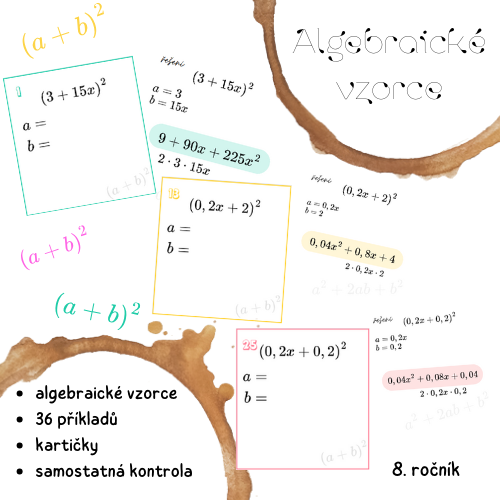 (a + b)²
Algebraické
vzorce
1
(3 + 15x)²
a =
b =
(a + b)²
řešení
(3 + 15x)²
a = 3
b = 15x
9 + 90x + 225x²
2 · 3 · 15x
13
(0, 2x + 2)²
a =
b =
(a + b)²
řešení
(0, 2x + 2)²
a = 0, 2x
b = 2
0, 04x² + 0, 8x + 4
2 · 0, 2x · 2
a² + 2ab + b²
(a + b)²
(a + b)²
25
(0, 2x + 0, 2)²
a =
b =
(a + b)²
řešení
(0, 2x + 0, 2)²
a = 0, 2x
b = 0, 2
0, 04x² + 0, 08x + 0, 04
2 · 0, 2x · 0, 2
a² + 2ab + b²
• algebraické vzorce
• 36 příkladů
• kartičky
• samostatná kontrola
8. ročník